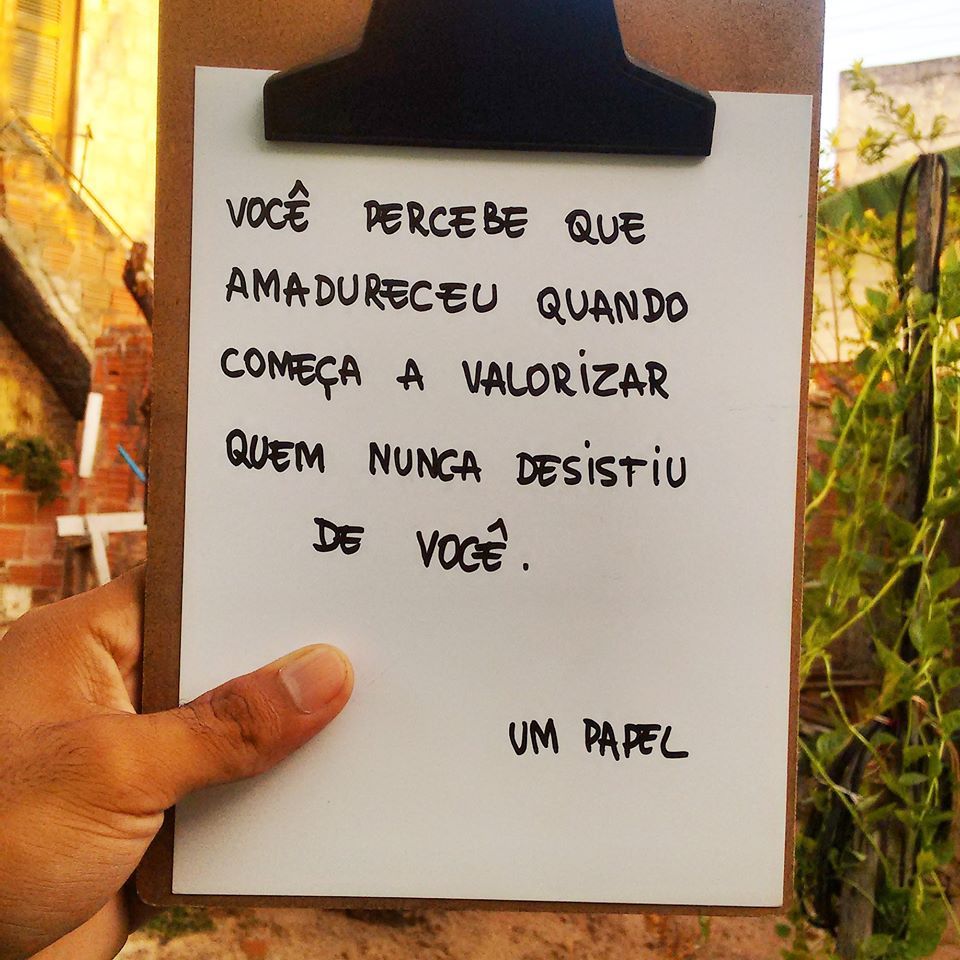 VOCÊ PERCEBE QUE
AMADURECEU QUANDO
COMEÇA A VALORIZAR
QUEM NUNCA DESISTIU
DE VOCÊ.
UM PAPEL